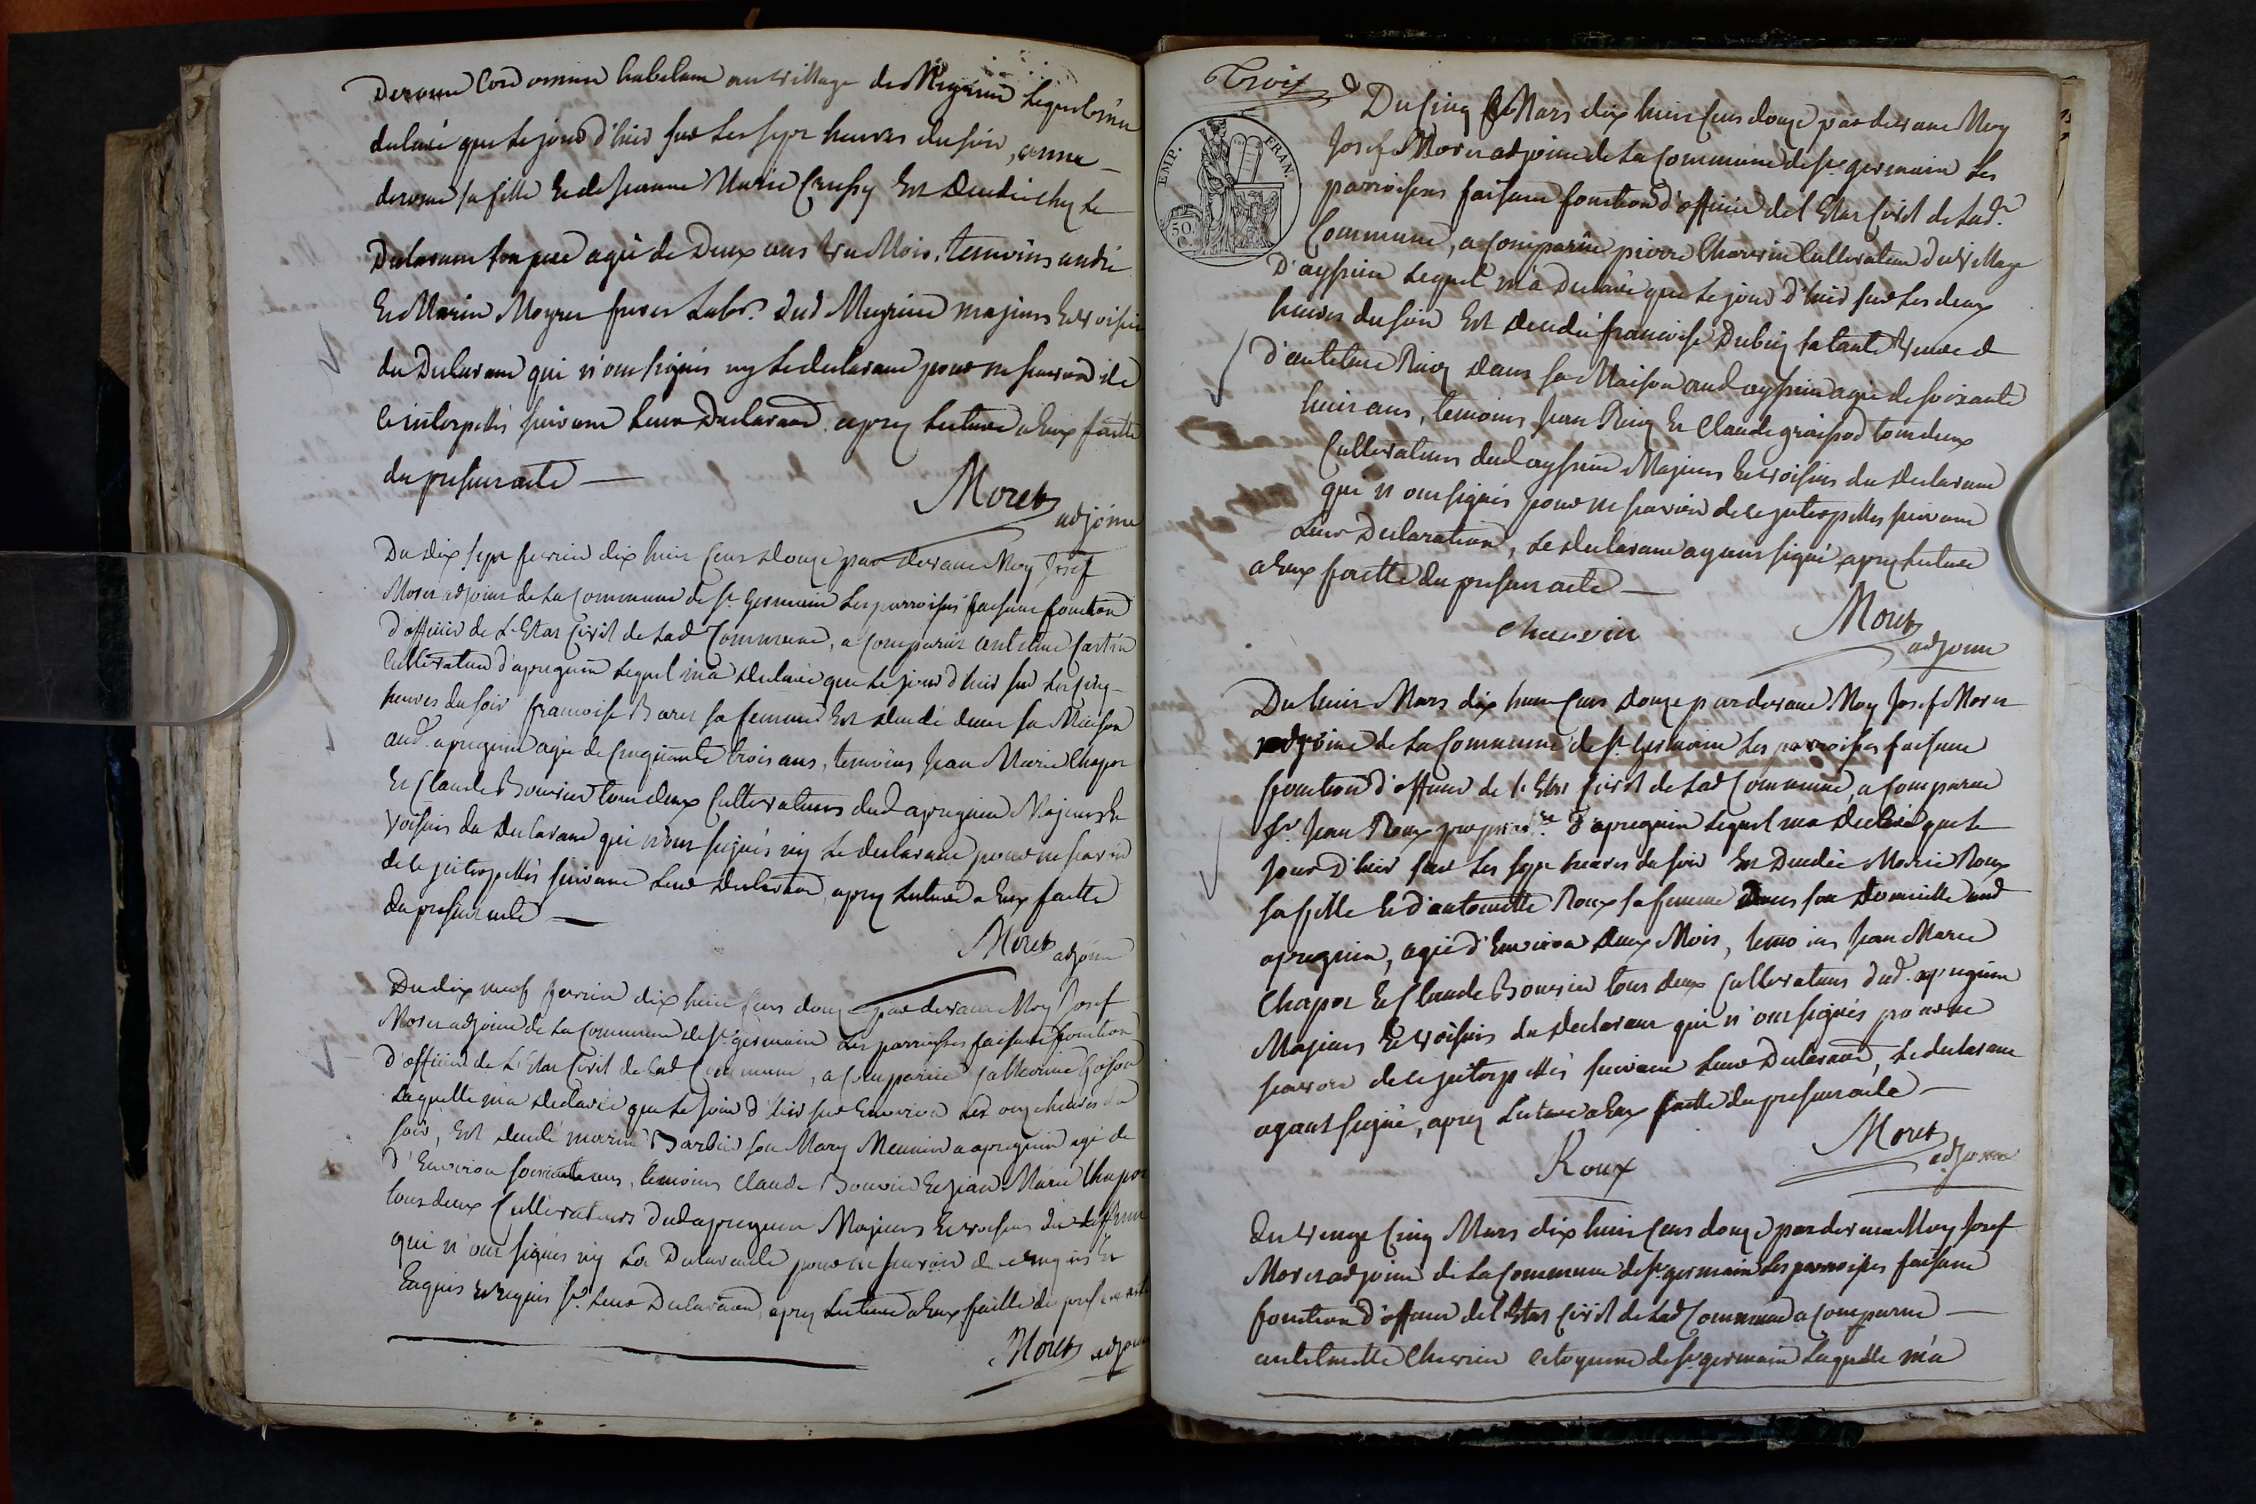 Derome Cordonnier habitant au village de Meyrieu Lequel m'a
declaré que le jour d'hier sur les sept heures du soir, anne
derome sa fille Et de jeanne Marie Est decedée chez le
Declarant son pere agée de Deux ans un Mois, temoins andré
Et Marin Meyret freres Labrs. dud Meyrieu majeurs Et voisins
du Declarant qui n'ont signés ny le declarant pour ne savoir
de ce interpellés suivant leur Declaraon. aprez lecture a Eux faitte
du present acte —
Moret
adjoint
Du dix sept fevrier dix huit Cens Douze par devant Moy Josef
Moret adjoint de La Commune de St. Germain Les parroisses faisant fonction
d'officier de L'Etat Civil de Lad Commune, a Comparut antelme
Cultivateur d'apregnin Lequel m'a declaré que le jour d'hier sur les cinq
heures du soir francoise Baret sa femme Est decedé dans sa Maison
aud. apregnin agée de Cinquante trois ans, temoins Jean Marie Chapot
Et Claude Bouvier tous deux Cultivateurs dud apregnin Majeurs Et
voisins du Declarant qui n'ont signés ny le declarant pour ne savoir
de ce interpellés suivant leur Declaraon aprez lecture a Eux faitte
du present acte —
Moret adjoint
Du dix neuf fevrier dix huit Cens douze par devant Moy Josef
Moret adjoint de La Commune de St. germain Les parroisses faisant fonction
d'officier de L'Etat Civil de Lad Commune, a Comparut Catherine
Laquelle m'a declaré que le jour d'hier sur Environ les onze heures du
soir, Est decedé marin Barbier son Mary Meunier a apregnin agé de
d'Environ soixante ans, temoins Claude Bouvier Et jean Marie Chapot
tous deux Cultivateurs dud apregnin Majeurs Et voisins du deffunt
qui n'ont signés ny La Declarante pour ne savoir de ce Enquis Et
Enquis Et requis St. leur Declaraon aprez lecture a Eux faitte du present acte
Moret adjoint
Trois
EMP. FRAN.
50. C.
Du Cinq Mars dix huit Cens douze par devant Moy
Josef Moret adjoint de La Commune de St. germain Les
parroisses faisant fonction d'officier de l'Etat Civil de Lade.
Commune, a Comparut pierre Chervin Cultivateur du village
D'ayssieu Lequel m'a Declaré que le jour d'hier sur les deux
heures du soir Est decedé francoise Dubuy sa tante veuve
d'antelme dans sa Maison aud ayssieu agée de soixante
huit ans, temoins Jean Et Claude tous deux
Cultivateurs dud ayssieu Majeurs Et voisins du Declarant
qui n'ont signés pour ne savoir de ce interpellés suivant
leur Declaration, le declarant ayant signé aprez lecture
a Eux faitte du present acte —
chervin
Moret
adjoint
Du huit Mars dix huit Cens Douze par devant Moy Josef Moret
adjoint de La Commune de St. Germain Les parroisses faisant
fonction d'officier de l'Etat Civil de Lad Commune, a Comparut
Sr. Jean Roux propriete. d'apregnin Lequel m'a Declaré que le
jour d'hier sur les sept heures du soir Est Decedée Marie Roux
sa fille Et d'antoinette Roux sa femme Dans son Domicille aud
apregnin, agée d'Environ deux Mois, temoins Jean Marie
Chapot Et Claude Bouvier tous deux Cultivateurs dud. apregnin
Majeurs Et voisins du declarant qui n'ont signés pour ne
savoir de ce interpellés suivant leur Declaraon, le declarant
ayant signé, aprez lecture a Eux faitte du present acte —
Roux
Moret
adjoint
Du vingt Cinq Mars dix huit Cens douze par devant Moy Josef
Moret adjoint de La Commune de St. germain Les parroisses faisant
fonction d'officier de l'Etat Civil de Lad Commune a Comparut —
antelmette Chervin citoyenne de St. germain Laquelle m'a